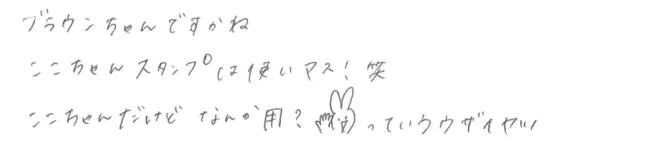 ブラウンちゃんですかね
ここちゃんスタンプは使いマス！笑
ここちゃんだけど なんか用？っていうウザイヤツ